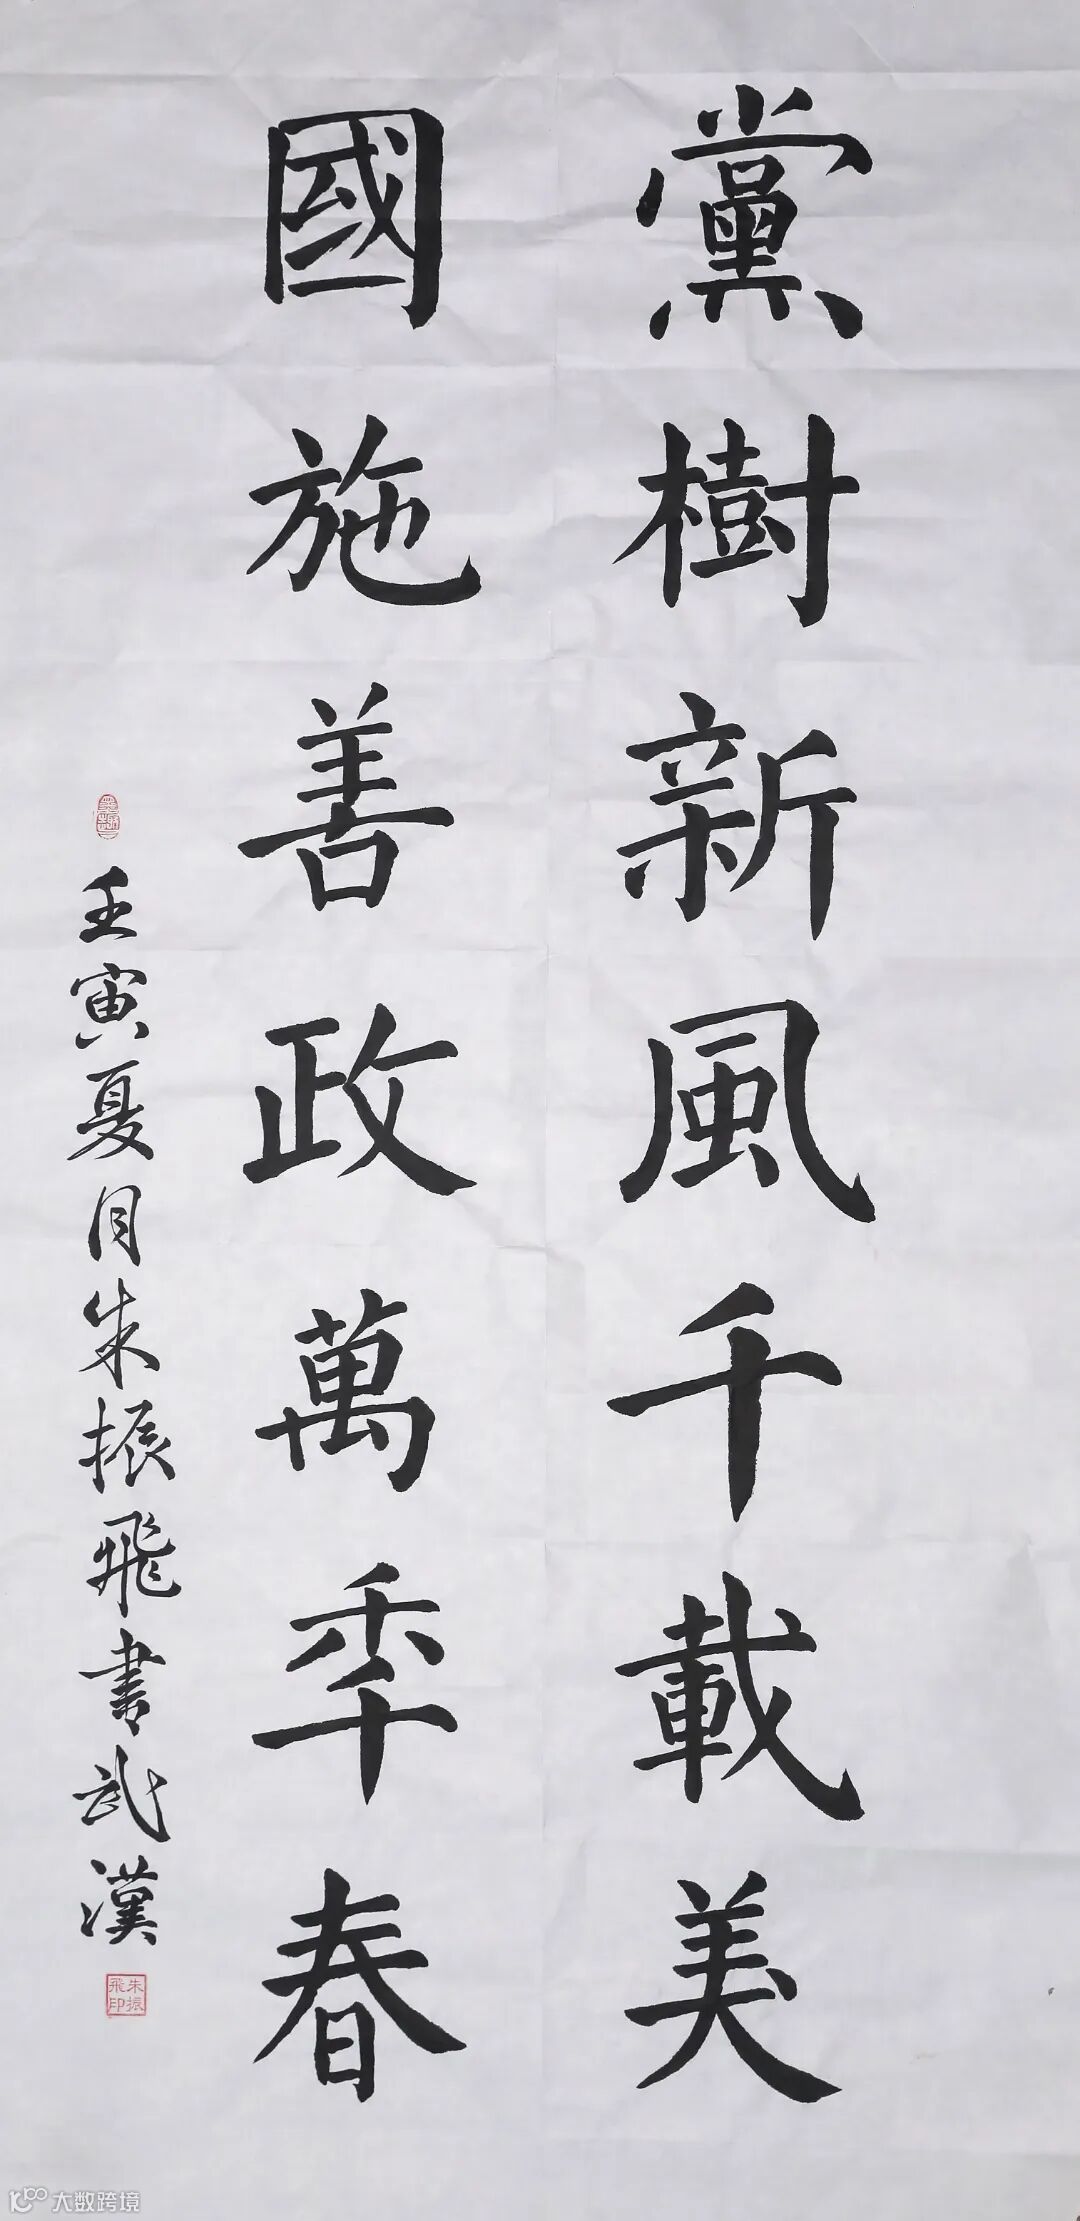 黨樹新風千載美
國施善政萬年春
壬寅夏月朱振飛書武漢
朱振飛印
大数跨境